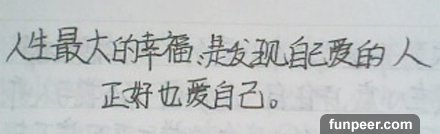 人生最大的幸福、是发现自己爱的人
正好也爱自己。
funpeer.com